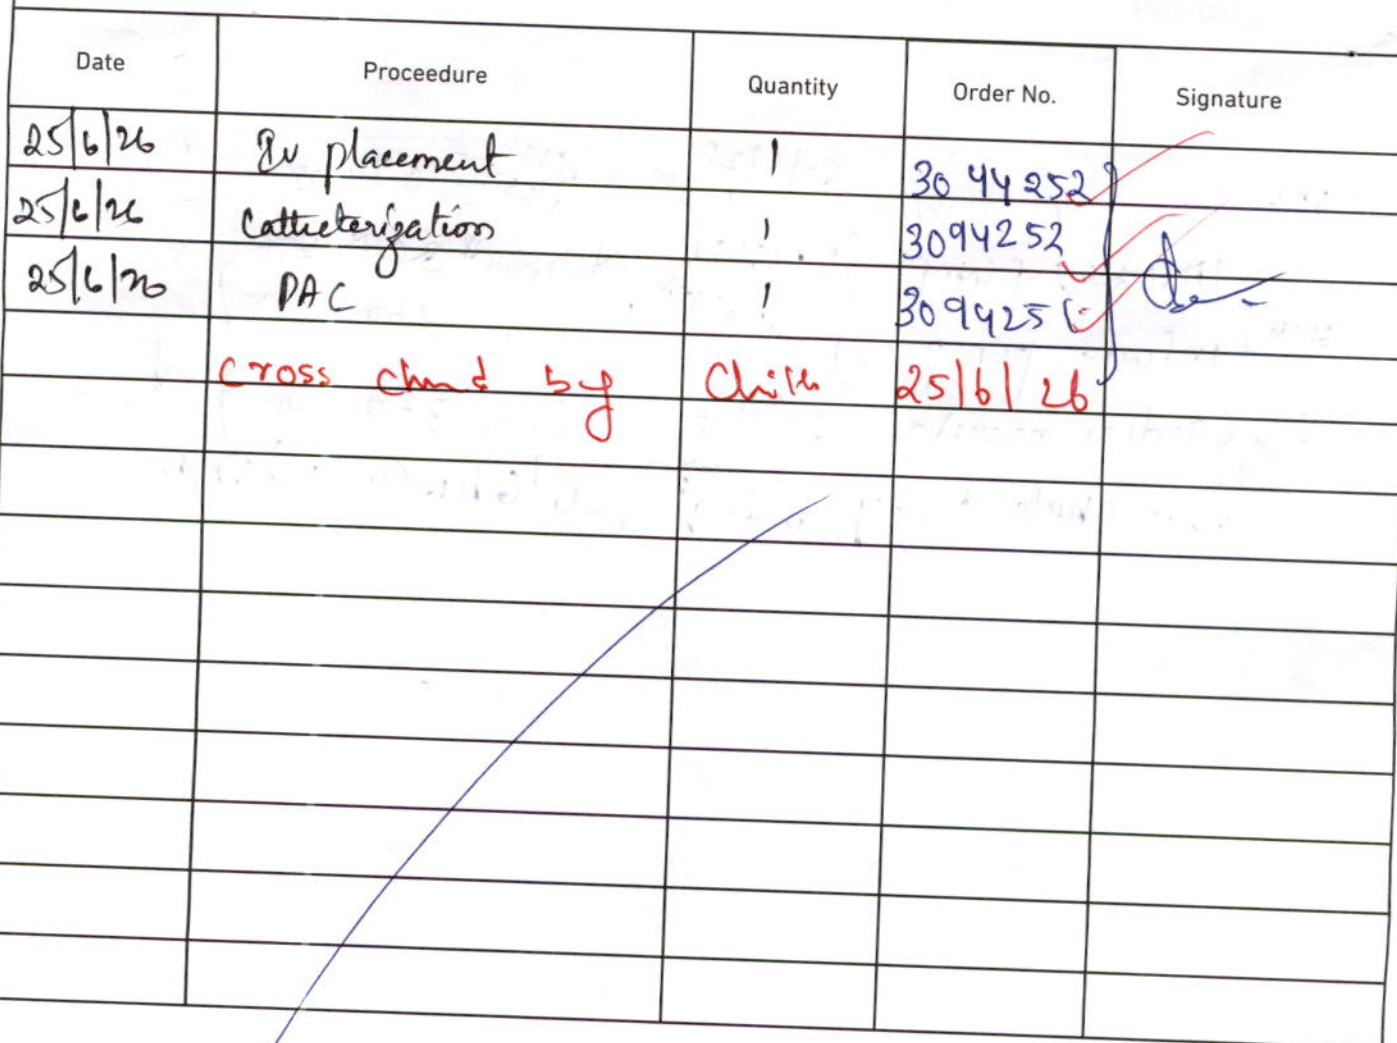 Date Proceedure Quantity Order No. Signature
25/6/26 Iv placement 1 3044252
25/6/26 Catheterization 1 3094252
25/6/26 PAC 1 3094251
cross by 25/6/26